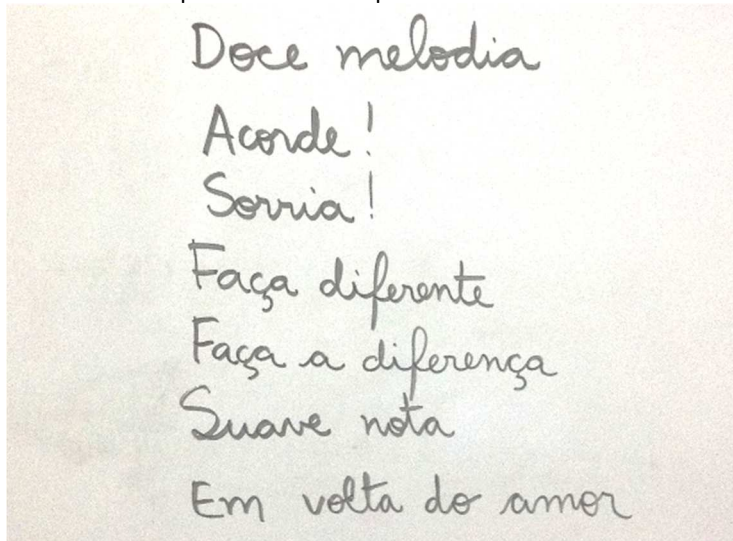 Doce melodia
Acorde!
Sorria!
Faça diferente
Faça a diferença
Suave nota
Em volta do amor